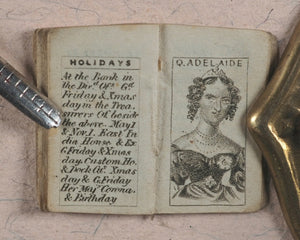 HOLIDAYS
At the Bank in
the Divd. Ofce. Gd.
Friday & Xmas
day in the Trea
surers Of. beside
the above. May 1
& Nov. 1. East In
dia House & Ex
G. Friday & Xmas
day. Custom Ho.
& Dock Of. Xmas
day & G. Friday
Her May. Corona.
& Birthday
Q. ADELAIDE